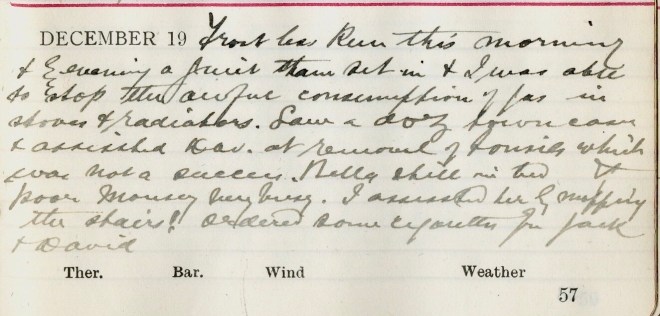 DECEMBER 19 Frost less keen this morning
& by evening a quiet thaw set in & I was able
to stop the awful consumption of gas in
stoves & radiators. Saw a doz town cases
& assisted Dav. at removal of tonsils which
was not a success. Bella still in bed &
poor Mousey very busy. I assisted her by mopping
the stairs! Ordered some cigarettes for Jack
& David
Ther. Bar. Wind Weather
57